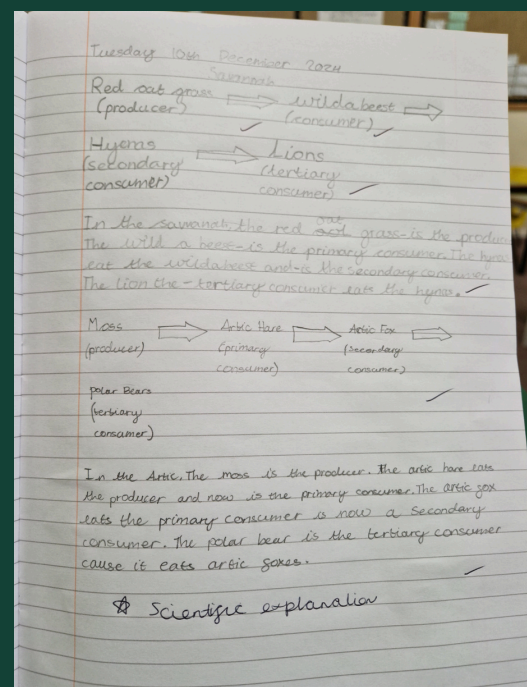 Tuesday 10th December 2024
Savannah
Red oat grass wildabeest
(producer) (consumer)
Hyenas Lions
(secondary (tertiary
consumer) consumer)
In the savanah, the red oat grass-is the produ
The wild a beest-is the primary consumer. The hyna
eat the wildabeest and-is the secondary consumer.
The lion the - tertiary consumer eats the hyna.
Moss Artic Hare Artic Fox
(producer) (primary (secondary
consumer) consumer)
polar Bears
(tertiary
consumer)
In the Artic, The moss is the producer. The artic hare eats
the producer and now is the primary consumer. The artic fox
eats the primary consumer is now a secondary
consumer. The polar bear is the tertiary consumer
cause it eats artic foxes.
☆ Scientific explanation